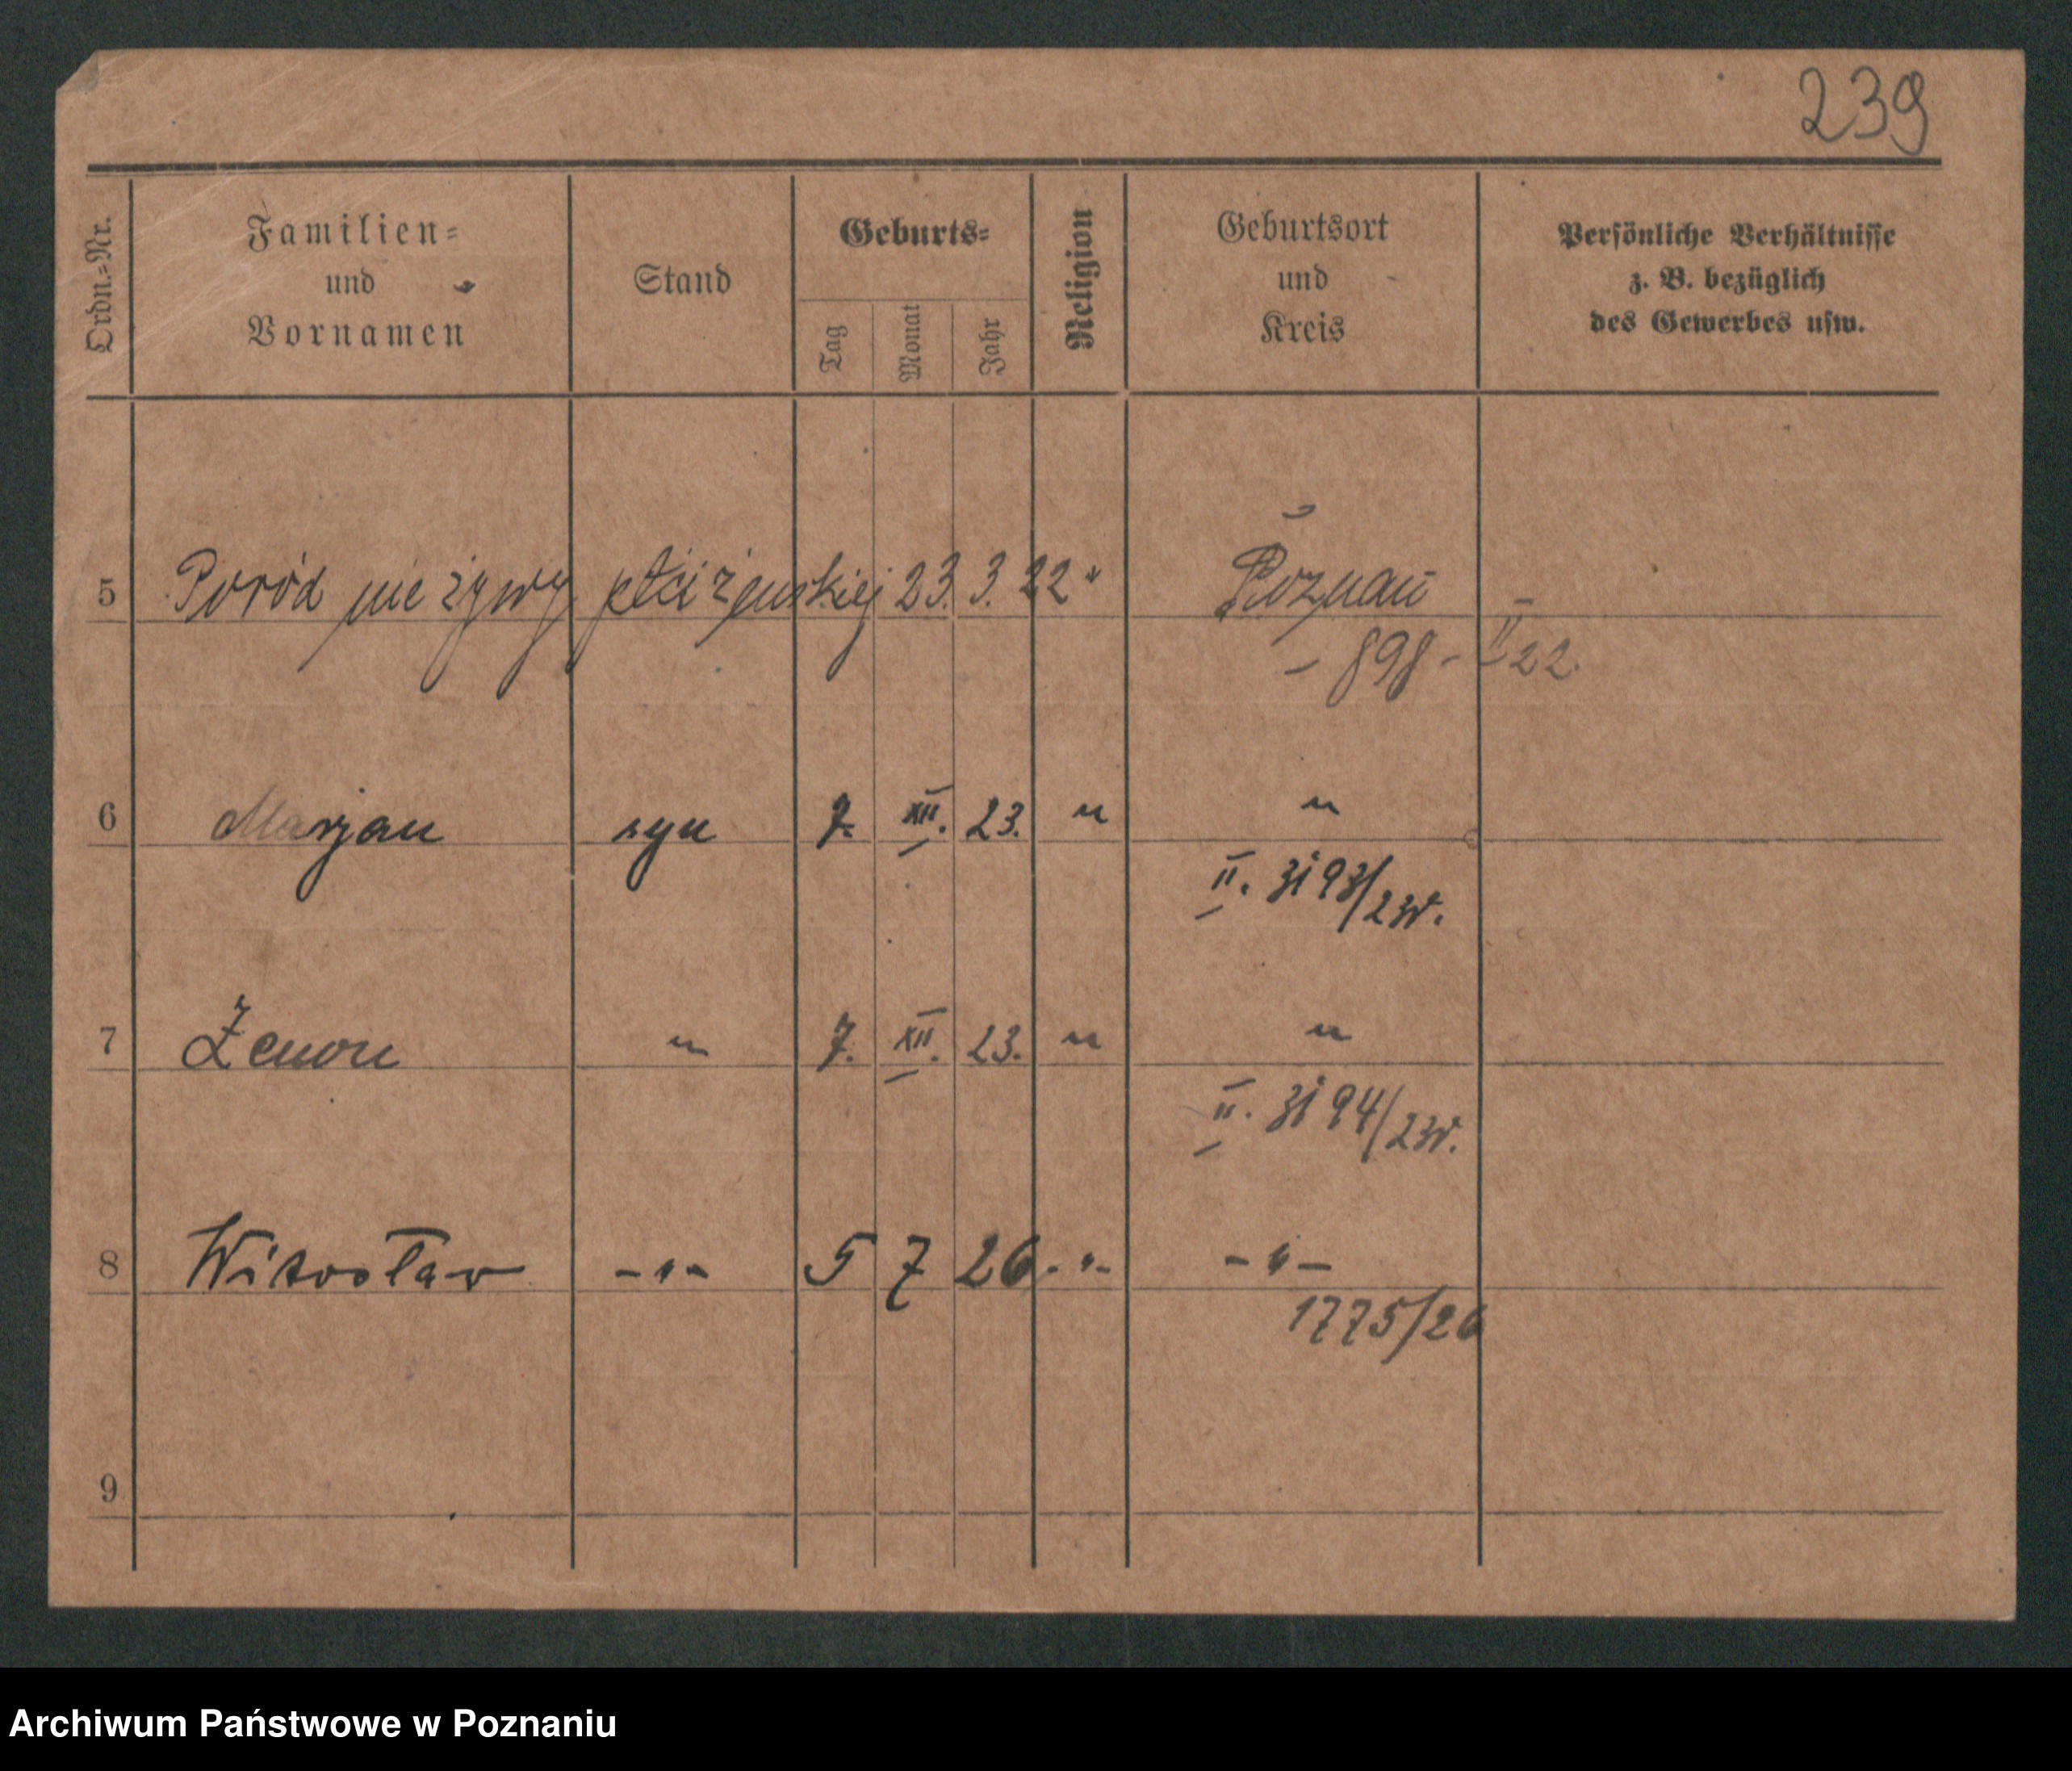 239
Ordn.-Nr.
Familien-
und
Vornamen
Stand
Geburts-
Tag
Monat
Jahr
Religion
Geburtsort
und
Kreis
Persönliche Verhältnisse
z. B. bezüglich
des Gewerbes usw.
5 Poród nie żywy płci żeńskiej 23. 3. 22 " Poznań
- 898 - II 22.
6 Marjan syn 7. XII. 23. " "
II. 3193/23r.
7 Zenon " 7. XII. 23. " "
II. 3194/23r.
8 Witosław -"- 5 7 26 -"- -"-
1775/26
9
Archiwum Państwowe w Poznaniu